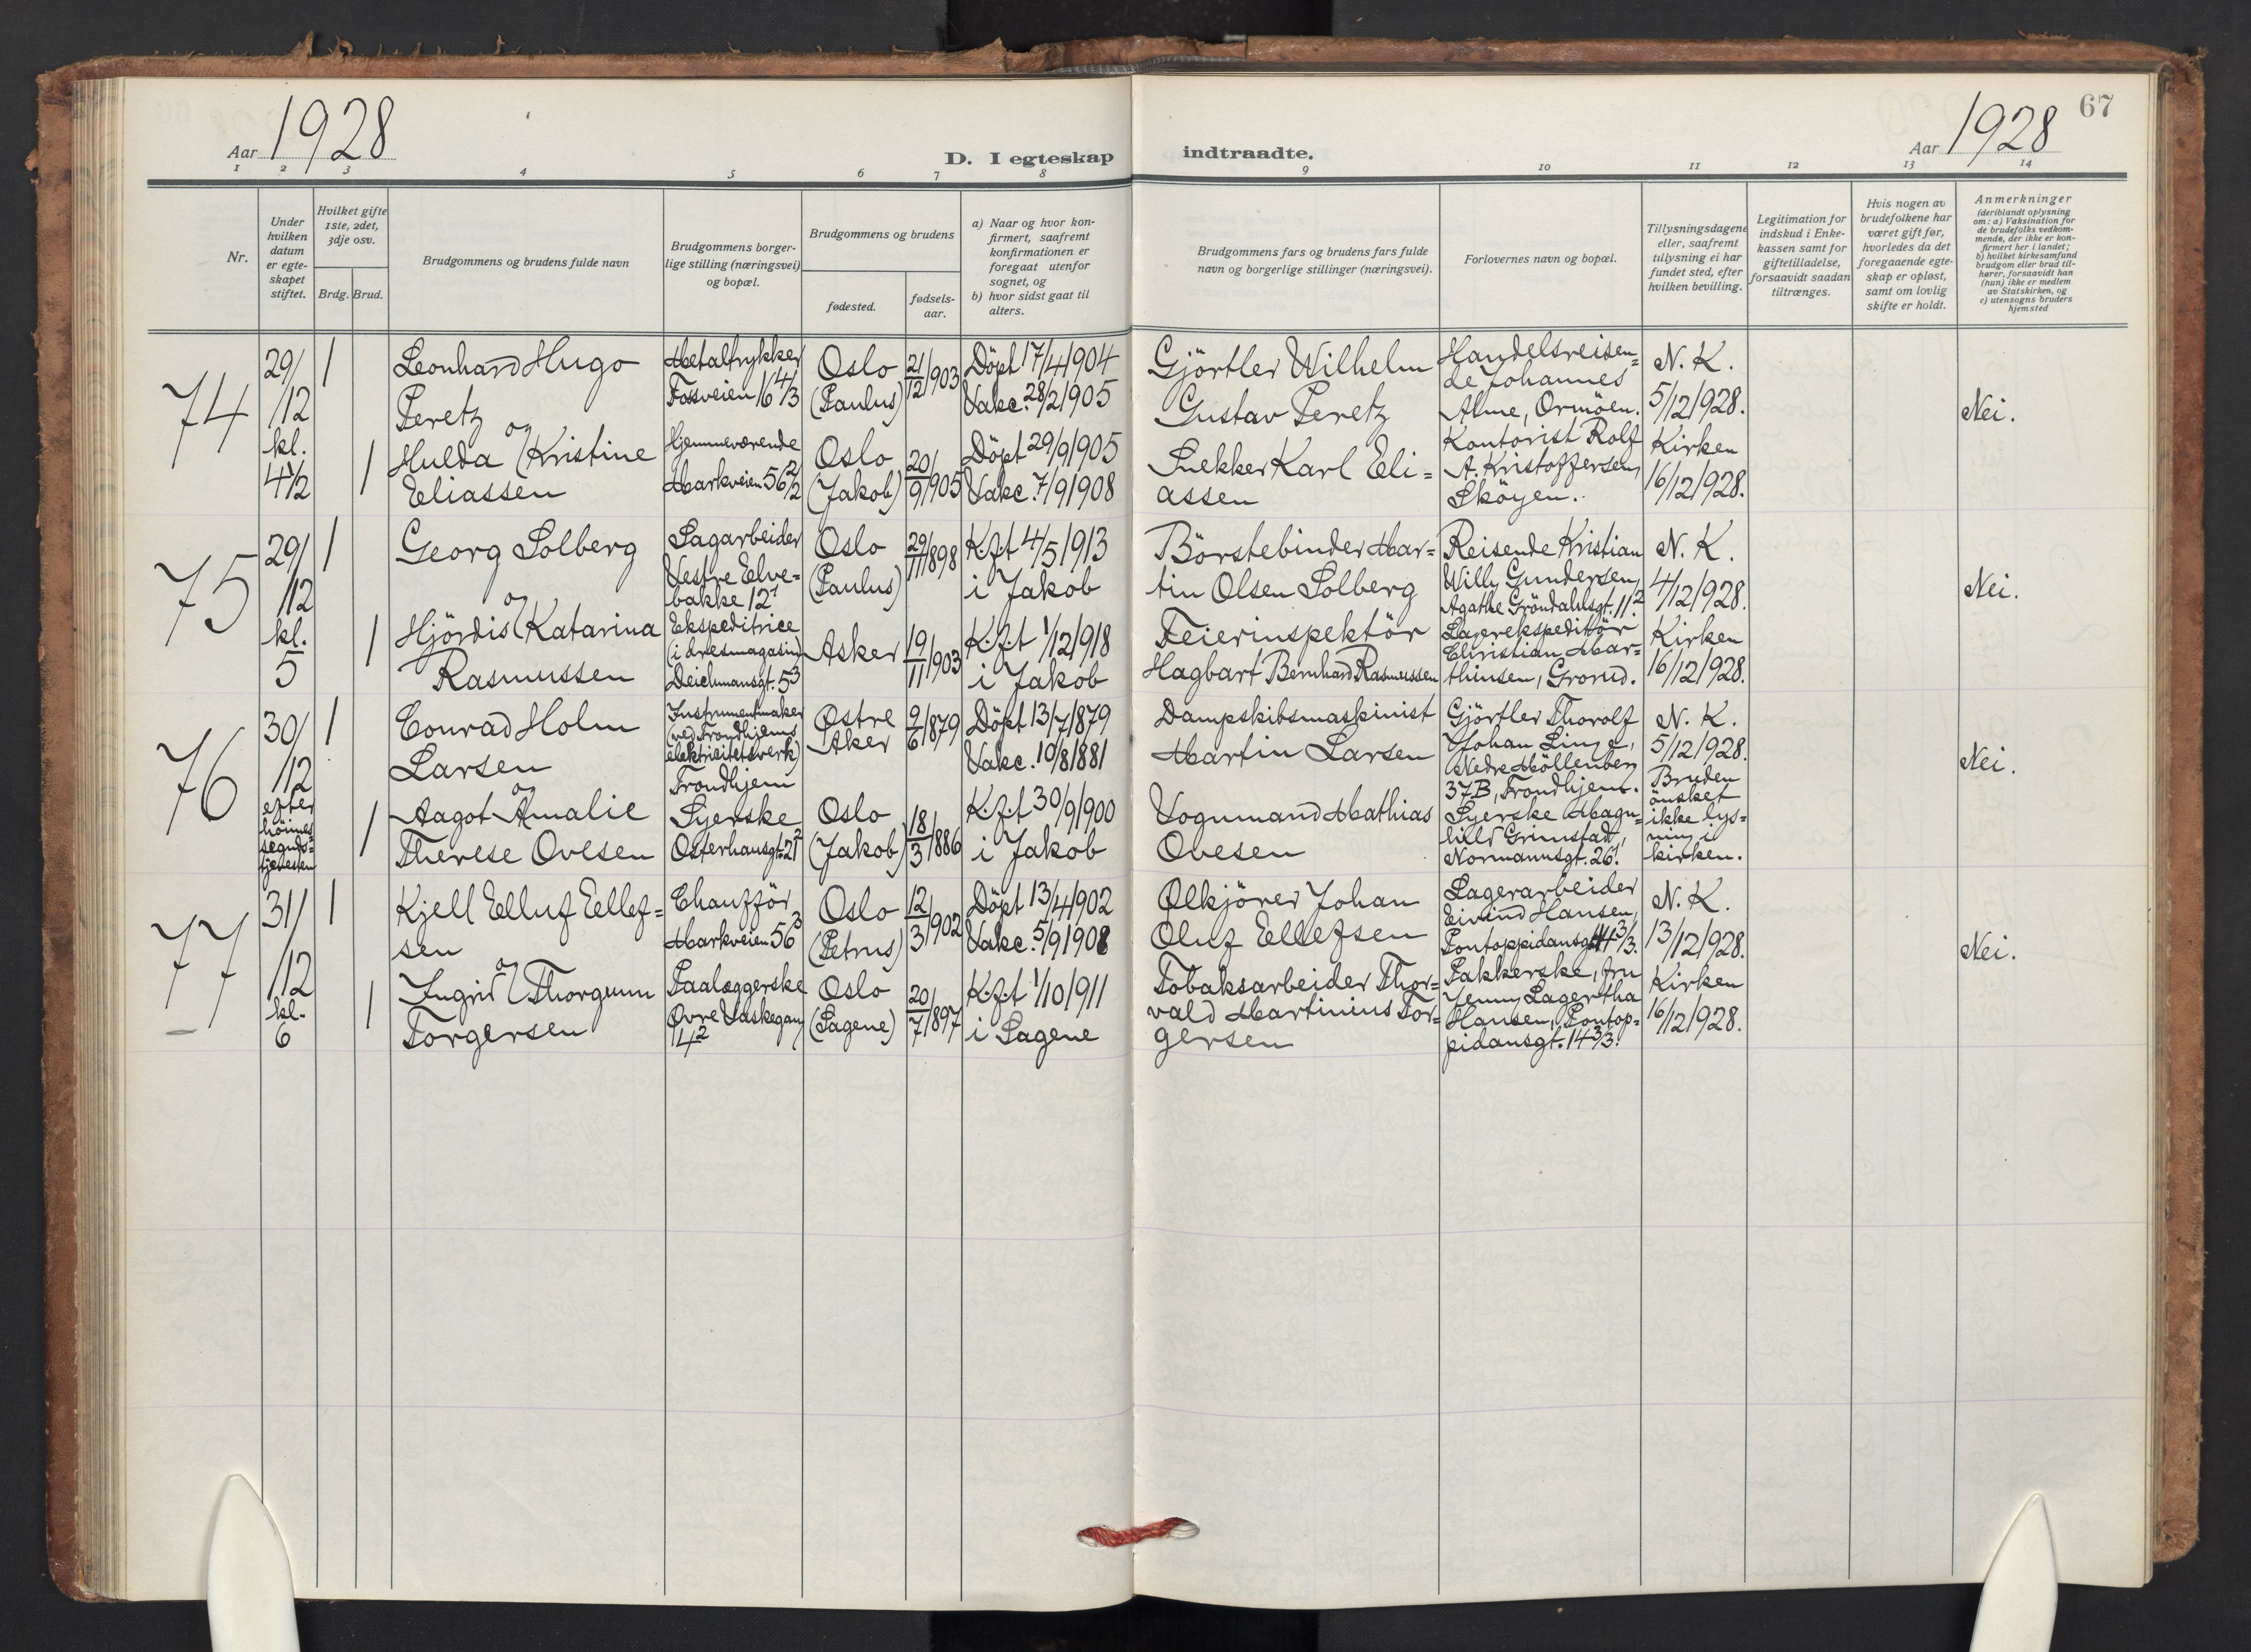 Aar 1928
D. I egteskap
indtraadte.
Aar 1928
67
1 2 3 4 5 6 7 8 9 10 11 12 13 14
Nr.
Under hvilken datum er egteskapet stiftet.
Hvilket gifte 1ste, 2det, 3dje osv.
Brdg. Brud.
Brudgommens og brudens fulde navn
Brudgommens borgerlige stilling (næringsvei) og bopæl.
Brudgommens og brudens
fødested.
fødselsaar.
a) Naar og hvor konfirmert, saafremt konfirmationen er foregaat utenfor sognet, og
b) hvor sidst gaat til alters.
Brudgommens fars og brudens fars fulde navn og borgerlige stillinger (næringsvei).
Forlovernes navn og bopæl.
Tillysningsdagene eller, saafremt tillysning ei har fundet sted, efter hvilken bevilling.
Legitimation for indskud i Enkekassen samt for giftetilladelse, forsaavidt saadan tiltrænges.
Hvis nogen av brudefolkene har været gift før, hvorledes da det foregaaende egteskap er opløst, samt om lovlig skifte er holdt.
Anmerkninger (deriblandt oplysning om: a) Vaksination for de brudefolks vedkommende, der ikke er konfirmert her i landet; b) hvilket kirkesamfund brudgom eller brud tilhører, forsaavidt han (hun) ikke er medlem av Statskirken, og c) utensogns bruders hjemsted
74
29/12 kl. 4 1/2
1
Leonhard Hugo
Peretz
Metaltrykker
Fossveien 16 4/3
Oslo
(Paulus)
21/12/903
Döpt 17/4/904
Vakc. 28/2/905
Gjörtler Wilhelm
Gustav Peretz
Handelsreisen=
de Johannes
Alme, Ormöen.
N. K.
5/12/928.
Nei.
og
1
Hulda Kristine
Eliassen
Hjemmeværende
Markveien 56 2/2
Oslo
(Jakob)
20/9/905
Döpt 29/9/905
Vakc. 7/9/908
Snekker Karl Eli=
assen
Kontorist Rolf
A. Kristoffersen,
Sköyen.
Kirken
16/12/928.
75
29/12 kl. 5
1
Georg Solberg
Sagarbeider
Vestre Elve=
bakke 12 1
Oslo
(Paulus)
29/11/898
K.f.t 4/5/913
i Jakob
Börstebinder Mar=
tin Olsen Solberg
Reisende Kristian
Willy Gundersen,
Agathe Gröndahlsgt. 11 2.
N. K.
4/12/928.
Nei.
og
1
Hjördis Katarina
Rasmussen
Ekspeditrice
(i dresmagasin)
Deichmansgt. 5 3
Asker
19/11/903
K.f.t 1/12/918
i Jakob
Feierinspektör
Hagbart Bernhard Rasmussen
Lagerekspeditör
Christian Mar=
thinsen, Grorud.
Kirken
16/12/928.
76
30/12 efter höimessegudstjenesten
1
Conrad Holm
Larsen
Instrumentmaker
(ved Trondhjems
elektricitetsverk)
Trondhjem
Østre
Aker
9/6/879
Döpt 13/7/879
Vakc. 10/8/881
Dampskibsmaskinist
Martin Larsen
Gjörtler Thorolf
Johan Linge,
Nedre Möllenberg
37B, Trondhjem.
N. K.
5/12/928.
Bruden
önsket
ikke lys=
ning i
kirken.
Nei.
og
1
Aagot Amalie
Therese Ovesen
Syerske
Osterhausgt. 21 2
Oslo
(Jakob)
18/3/886
K.f.t 30/9/900
i Jakob
Vognmand Mathias
Ovesen
Syerske Magn=
hild Grimstad,
Normannsgt. 26 1.
77
31/12 kl. 6
1
Kjell Elluf Ellef=
sen
Chaufför
Markveien 56 3
Oslo
(Petrus)
12/3/902
Döpt 13/4/902
Vakc. 5/9/908
Ølkjörer Johan
Oluf Ellefsen
Lagerarbeider
Eivind Hansen,
Pontoppidansgt. 14 3/3.
N. K.
13/12/928.
Nei.
og
1
Ingrid Thorgunn
Torgersen
Paalæggerske
Øvre Vaskegang
4 2
Oslo
(Sagene)
20/7/897
K.f.t 1/10/911
i Sagene
Tobaksarbeider Thor=
vald Martinius Tor=
gersen
Pakkerske, fru
Jenny Lagertha
Hansen, Pontop=
pidansgt. 14 3/3.
Kirken
16/12/928.